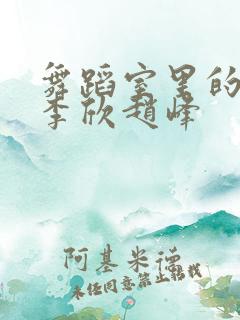 舞蹈室里的
李欣赵峰
阿基米德
未经同意禁止转载